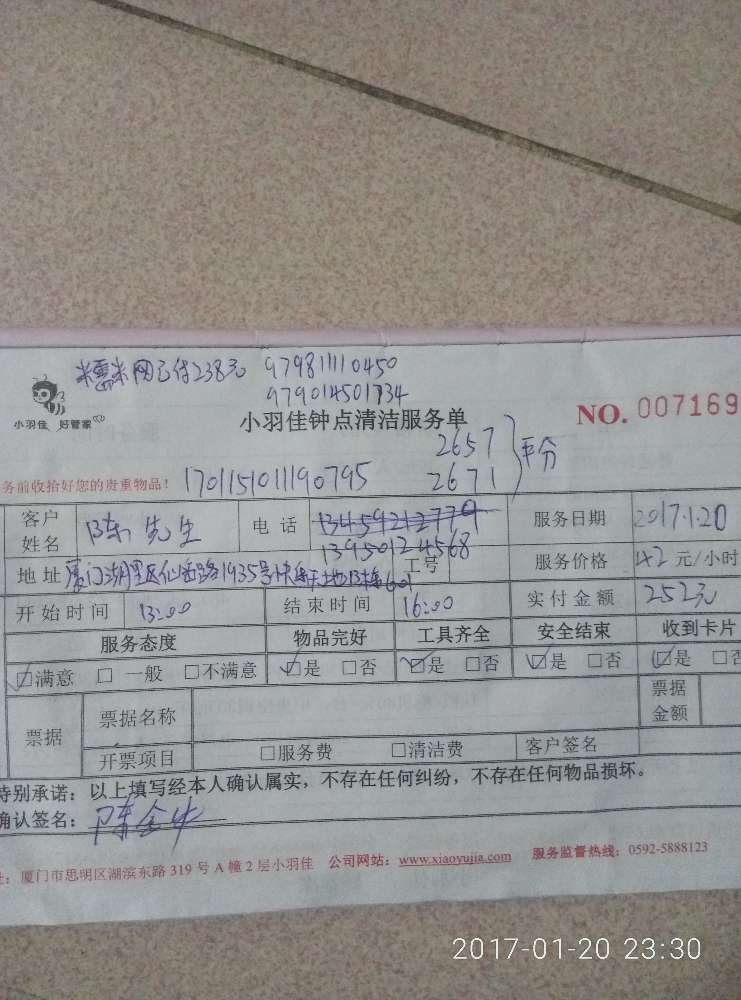 糯米网已付238元 979811110450
979014501734
小羽佳 好管家
小羽佳钟点清洁服务单 NO. 007169
2657
2671 平分
务前收拾好您的贵重物品! 170115101190795
客户姓名 陈先生 电话 13459212779 服务日期 2017.1.20
13950124568
地址 厦门湖里区仙岳路1935号 13栋601 工号 服务价格 42元/小时
开始时间 13:00 结束时间 16:00 实付金额 252元
服务态度 物品完好 工具齐全 安全结束 收到卡片
☑满意 □一般 □不满意 ☑是 □否 ☑是 □否 ☑是 □否 ☑是 □否
票据 票据名称 票据金额
开票项目 □服务费 □清洁费 客户签名
特别承诺：以上填写经本人确认属实，不存在任何纠纷，不存在任何物品损坏。
确认签名：
址：厦门市思明区湖滨东路 319 号 A 幢 2 层小羽佳 公司网站：www.xiaoyujia.com 服务监督热线：0592-5888123
2017-01-20 23:30